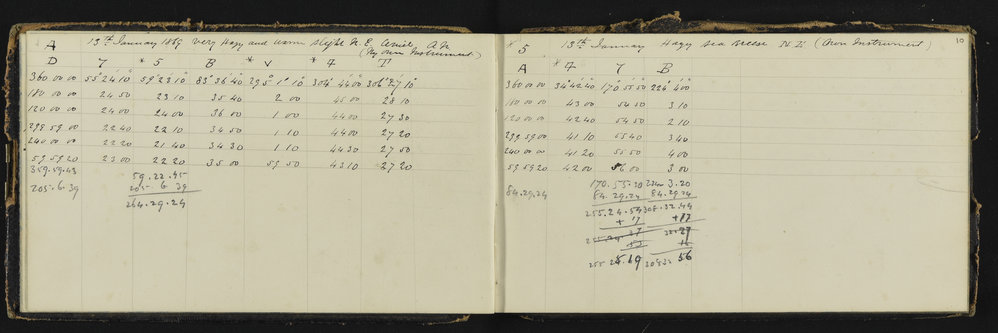 A 13th January 1869 Very Hazy and warm slight N.E.
(My own Instrument)
D 7 *5 B *V *4 T
360 00 00 55° 24' 10" 59° 23' 10" 83° 36' 40" 295° 1' 10" 304° 44' 00" 306° 27' 10"
180 00 00 24 50 23 10 35 40 2 00 45 00 28 10
120 00 00 24 00 24 00 36 00 1 00 44 00 27 30
298 59 00 22 40 22 10 34 50 1 10 44 00 27 20
240 00 00 22 20 21 40 34 30 1 10 44 30 27 50
59 59 20 23 00 22 20 35 00 59 50 43 10 27 20
359.59.43 59.22.45
205.6.39 205.6.39
264.29.24
10
* 5 13th January Hazy Sea Breeze N.E. (Own Instrument)
A *4 7 B
360 00 00 34° 42' 40" 170° 55' 50" 224° 4' 00"
180 00 00 43 00 54 50 3 10
120 00 00 42 40 54 50 2 10
299 59 00 41 10 55 40 3 40
240 00 00 41 20 55 50 4 00
59 59 20 42 00 56 00 3 00
170.55.30 224 3.20
84.29.24 84.29.24 84.29.24
255.24.54 308.32.44
+ 17 +17